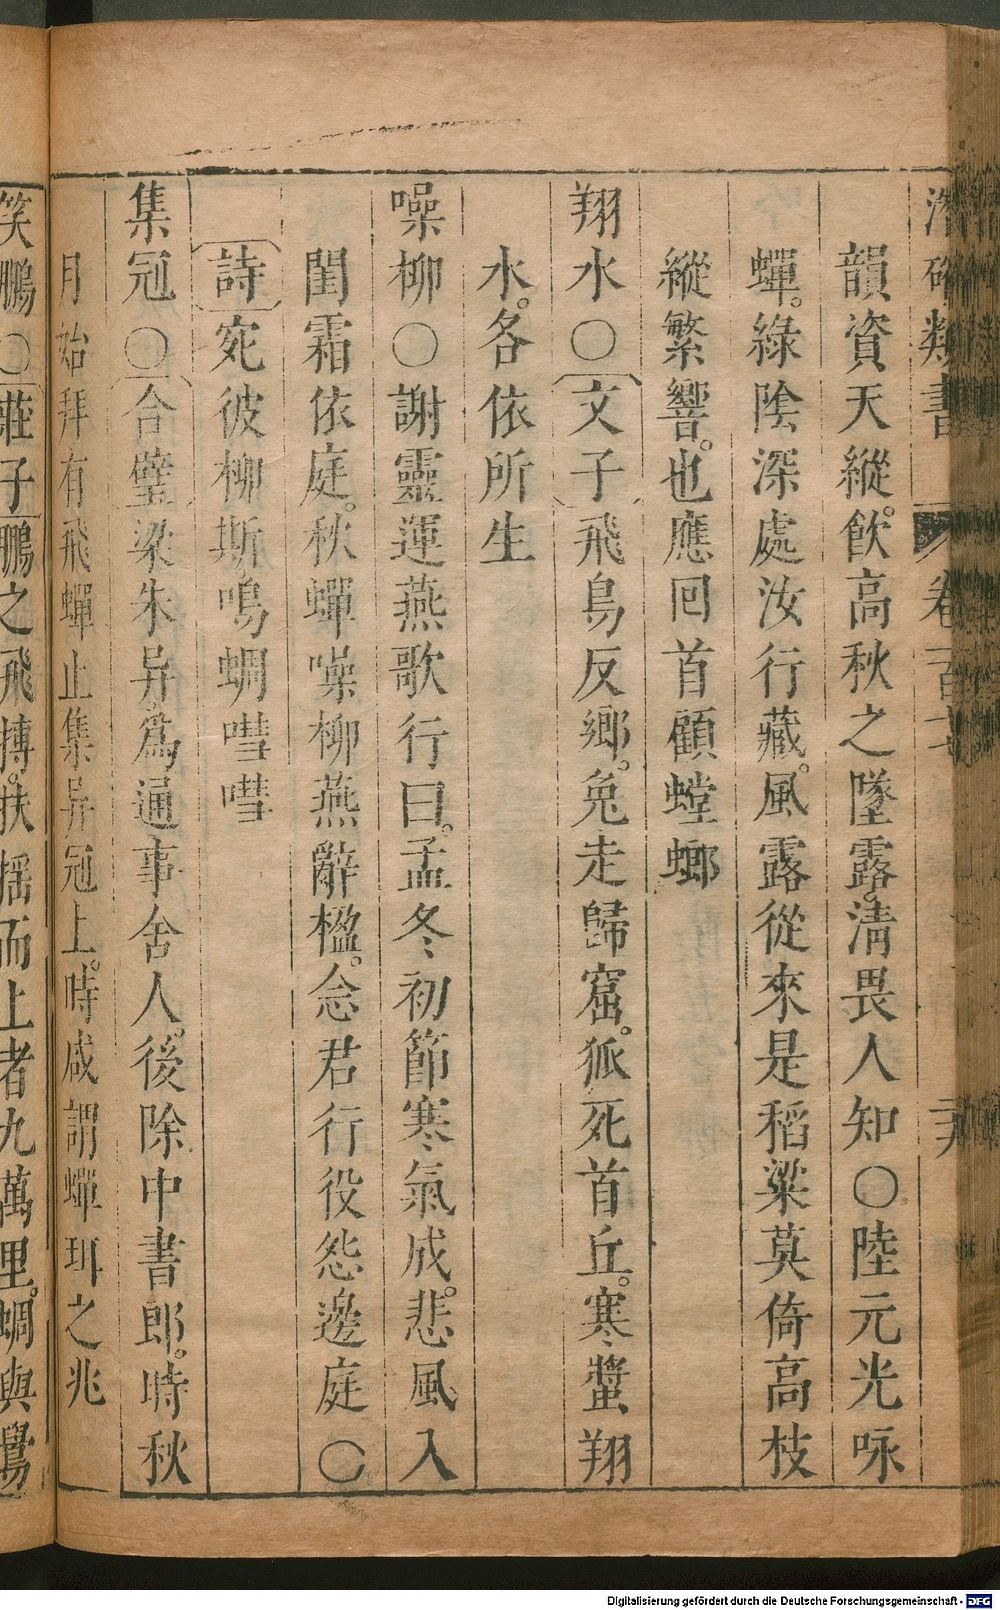 類書 卷一百七
韻資天縱飲高秋之墜露清畏人知○陸元光咏
蟬。綠陰深處汝行藏。風露從來是稻粱莫倚高枝
縱繁響。也應回首顧螳螂
翔水○文子飛鳥反鄉。兔走歸窟。狐死首丘。寒螿翔
水。各依所生
噪柳○謝靈運燕歌行曰。孟冬初節寒氣成。悲風入
閨霜依庭。秋蟬噪柳燕辭楹。念君行役怨邊庭○
詩宛彼柳斯鳴蜩嘒嘒
集冠○合璧梁朱异爲通事舍人。後除中書郎。時秋
月始拜有飛蟬止集异冠上。時咸謂蟬珥之兆
笑鵬○莊子鵬之飛摶。扶搖而上者九萬里。蜩與鷽
Digitalisierung gefördert durch die Deutsche Forschungsgemeinschaft - DFG